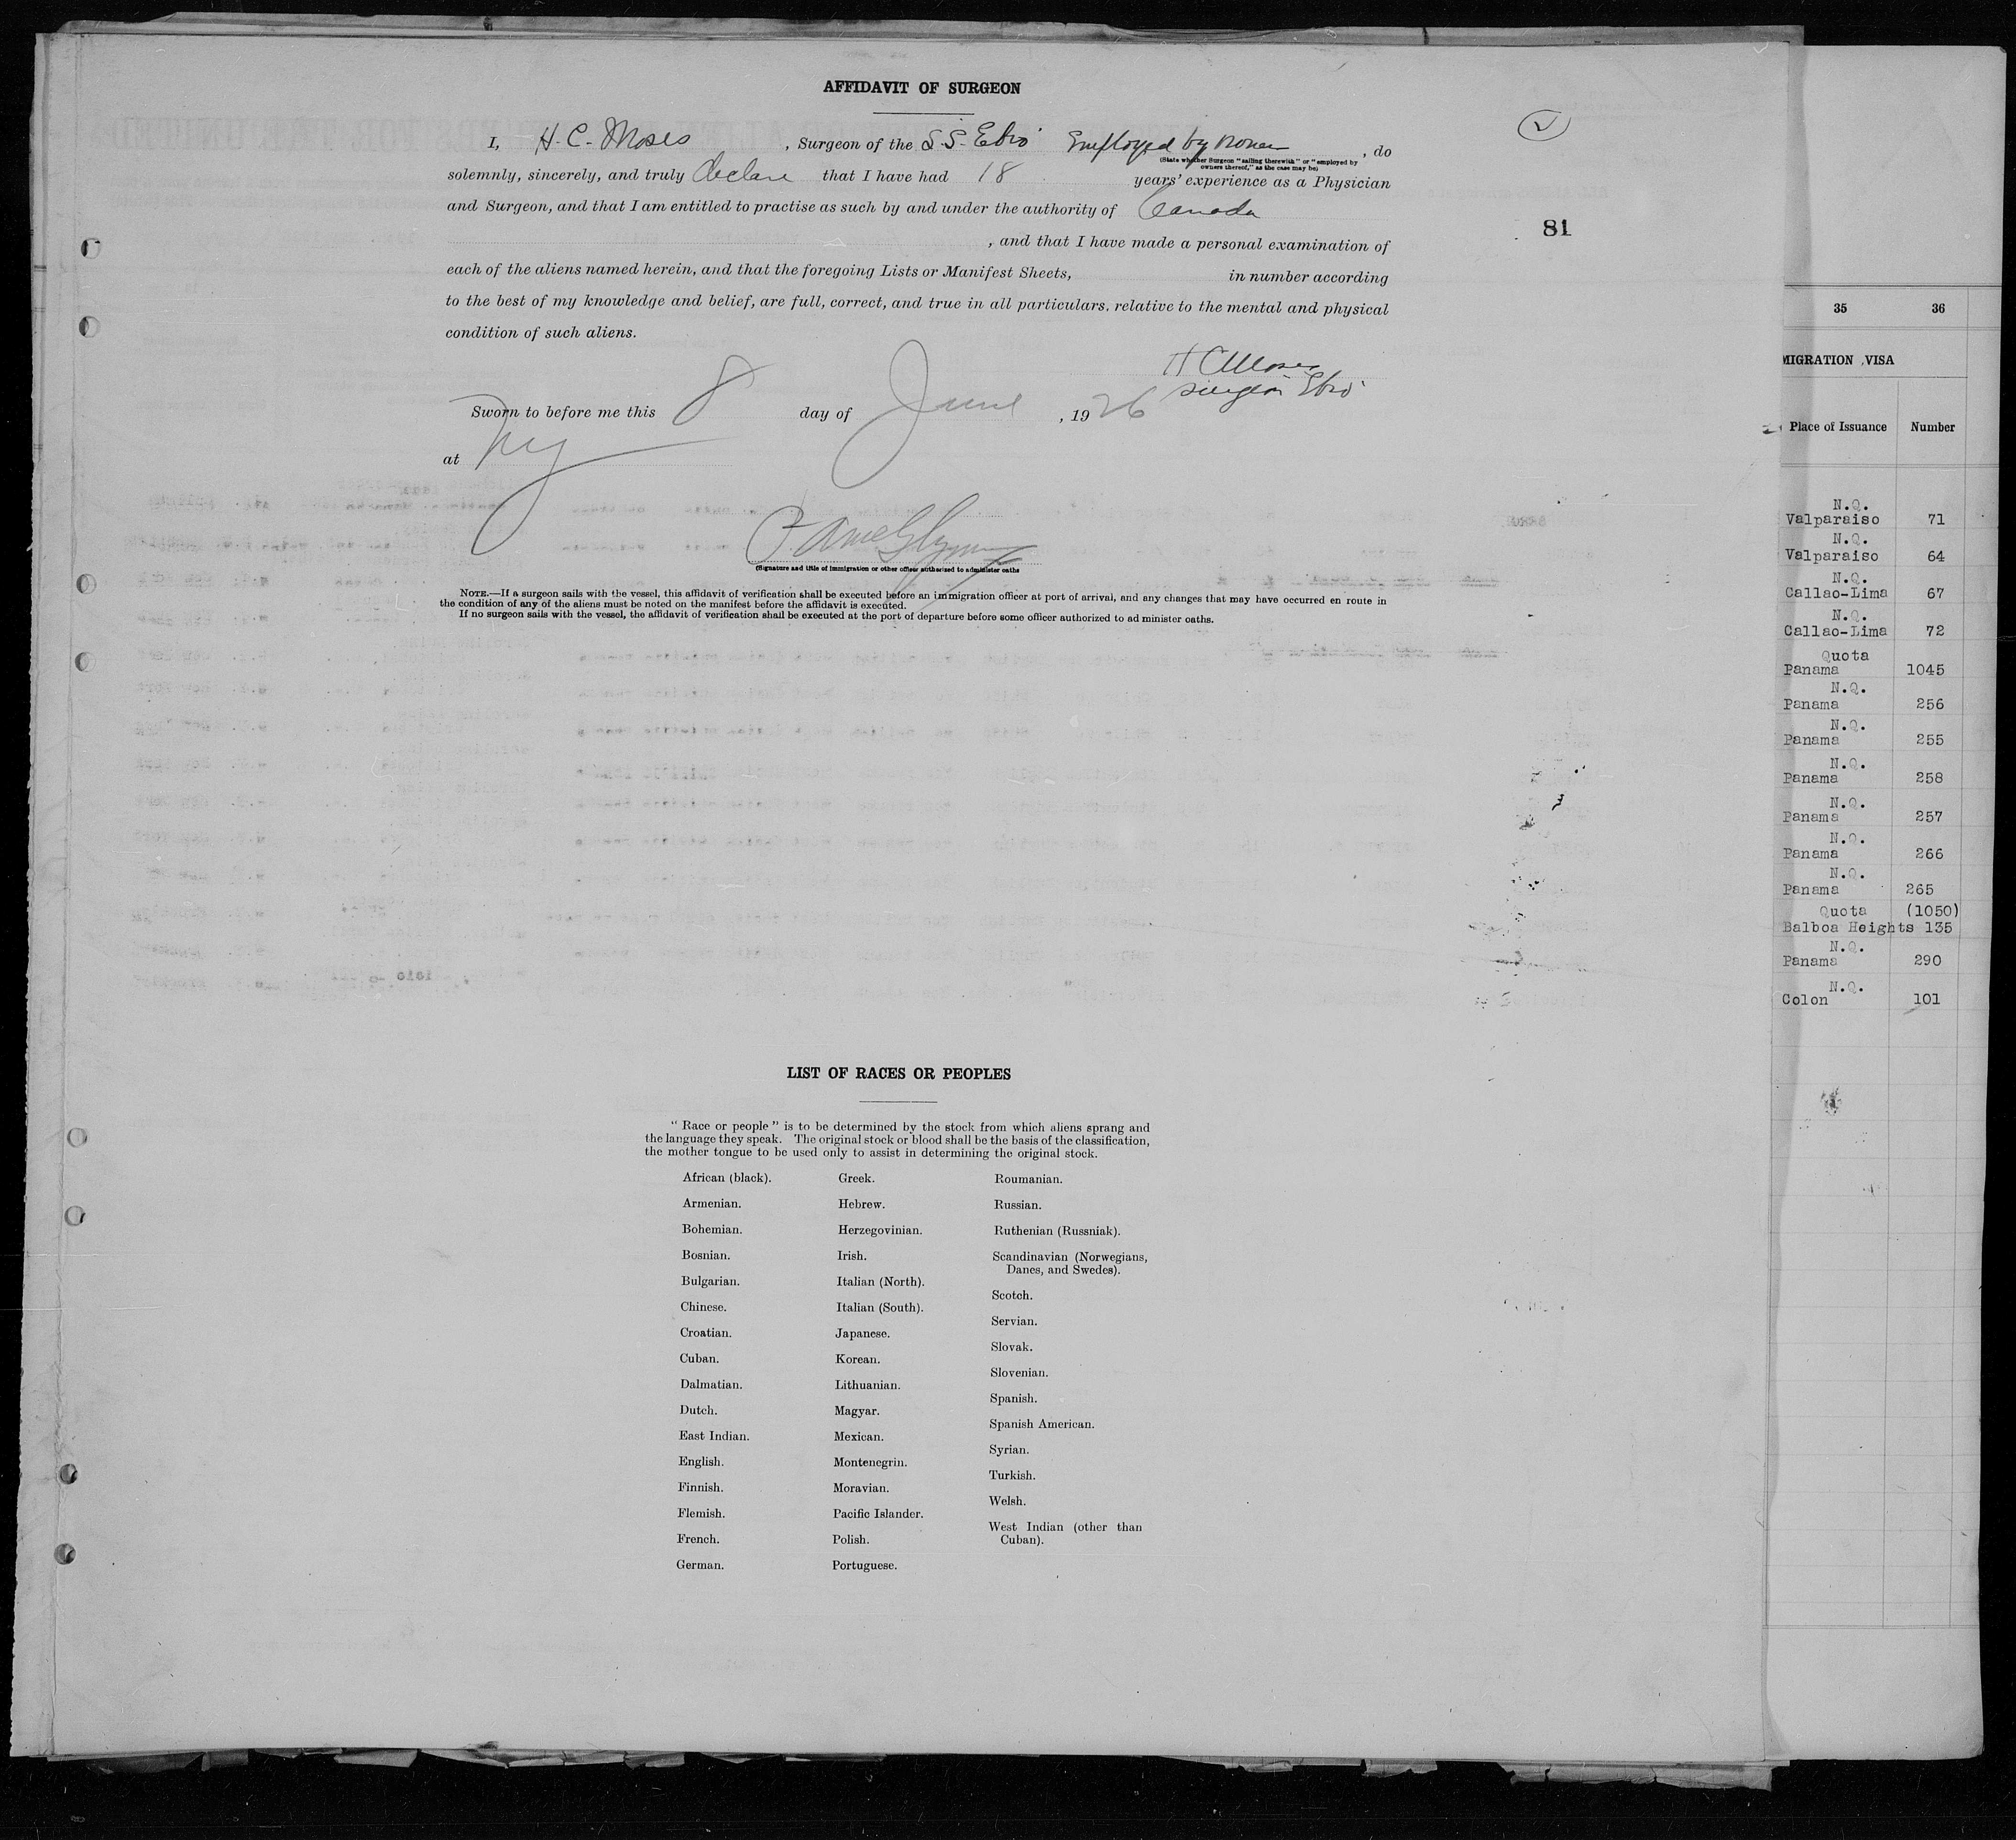 AFFIDAVIT OF SURGEON
2
I, H. C. Moses, Surgeon of the S.S. Ebro Employed by, do
(State whether Surgeon "sailing therewith" or "employed by
owners thereof," as the case may be)
solemnly, sincerely, and truly declare that I have had 18 years' experience as a Physician
and Surgeon, and that I am entitled to practise as such by and under the authority of Canada
, and that I have made a personal examination of
81
each of the aliens named herein, and that the foregoing Lists or Manifest Sheets, in number according
to the best of my knowledge and belief, are full, correct, and true in all particulars, relative to the mental and physical
condition of such aliens.
H C Moses
Surgeon Ebro
Sworn to before me this 8 day of June, 1926
at NY
(Signature and title of immigration or other officer authorized to administer oaths
NOTE.—If a surgeon sails with the vessel, this affidavit of verification shall be executed before an immigration officer at port of arrival, and any changes that may have occurred en route in
the condition of any of the aliens must be noted on the manifest before the affidavit is executed.
If no surgeon sails with the vessel, the affidavit of verification shall be executed at the port of departure before some officer authorized to ad minister oaths.
LIST OF RACES OR PEOPLES
"Race or people" is to be determined by the stock from which aliens sprang and
the language they speak. The original stock or blood shall be the basis of the classification,
the mother tongue to be used only to assist in determining the original stock.
African (black).
Armenian.
Bohemian.
Bosnian.
Bulgarian.
Chinese.
Croatian.
Cuban.
Dalmatian.
Dutch.
East Indian.
English.
Finnish.
Flemish.
French.
German.
Greek.
Hebrew.
Herzegovinian.
Irish.
Italian (North).
Italian (South).
Japanese.
Korean.
Lithuanian.
Magyar.
Mexican.
Montenegrin.
Moravian.
Pacific Islander.
Polish.
Portuguese.
Roumanian.
Russian.
Ruthenian (Russniak).
Scandinavian (Norwegians,
Danes, and Swedes).
Scotch.
Servian.
Slovak.
Slovenian.
Spanish.
Spanish American.
Syrian.
Turkish.
Welsh.
West Indian (other than
Cuban).
35 36
MIGRATION VISA
Place of Issuance Number
N.Q.
Valparaiso 71
N.Q.
Valparaiso 64
N.Q.
Callao-Lima 67
N.Q.
Callao-Lima 72
Quota
Panama 1045
N.Q.
Panama 256
N.Q.
Panama 255
N.Q.
Panama 258
N.Q.
Panama 257
N.Q.
Panama 266
N.Q.
Panama 265
Quota (1050)
Balboa Heights 135
N.Q.
Panama 290
N.Q.
Colon 101